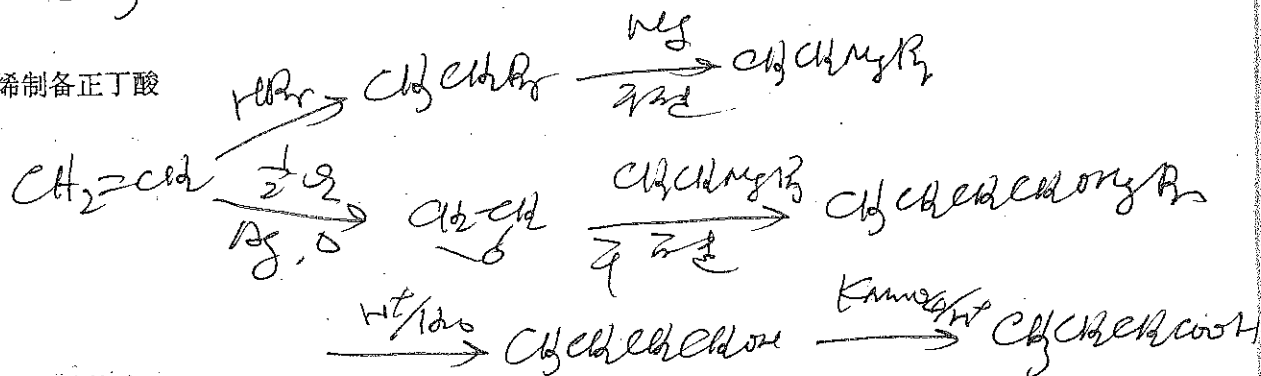 烯制备正丁酸
HBr CH3CH2Br Mg 干乙醚 CH3CH2MgBr
CH2=CH2 1/2 O2 Ag, Δ CH2-CH2 O CH3CH2MgBr 干乙醚 CH3CH2CH2CH2OMgBr
H+/H2O CH3CH2CH2CH2OH KMnO4/H+ CH3CH2CH2COOH